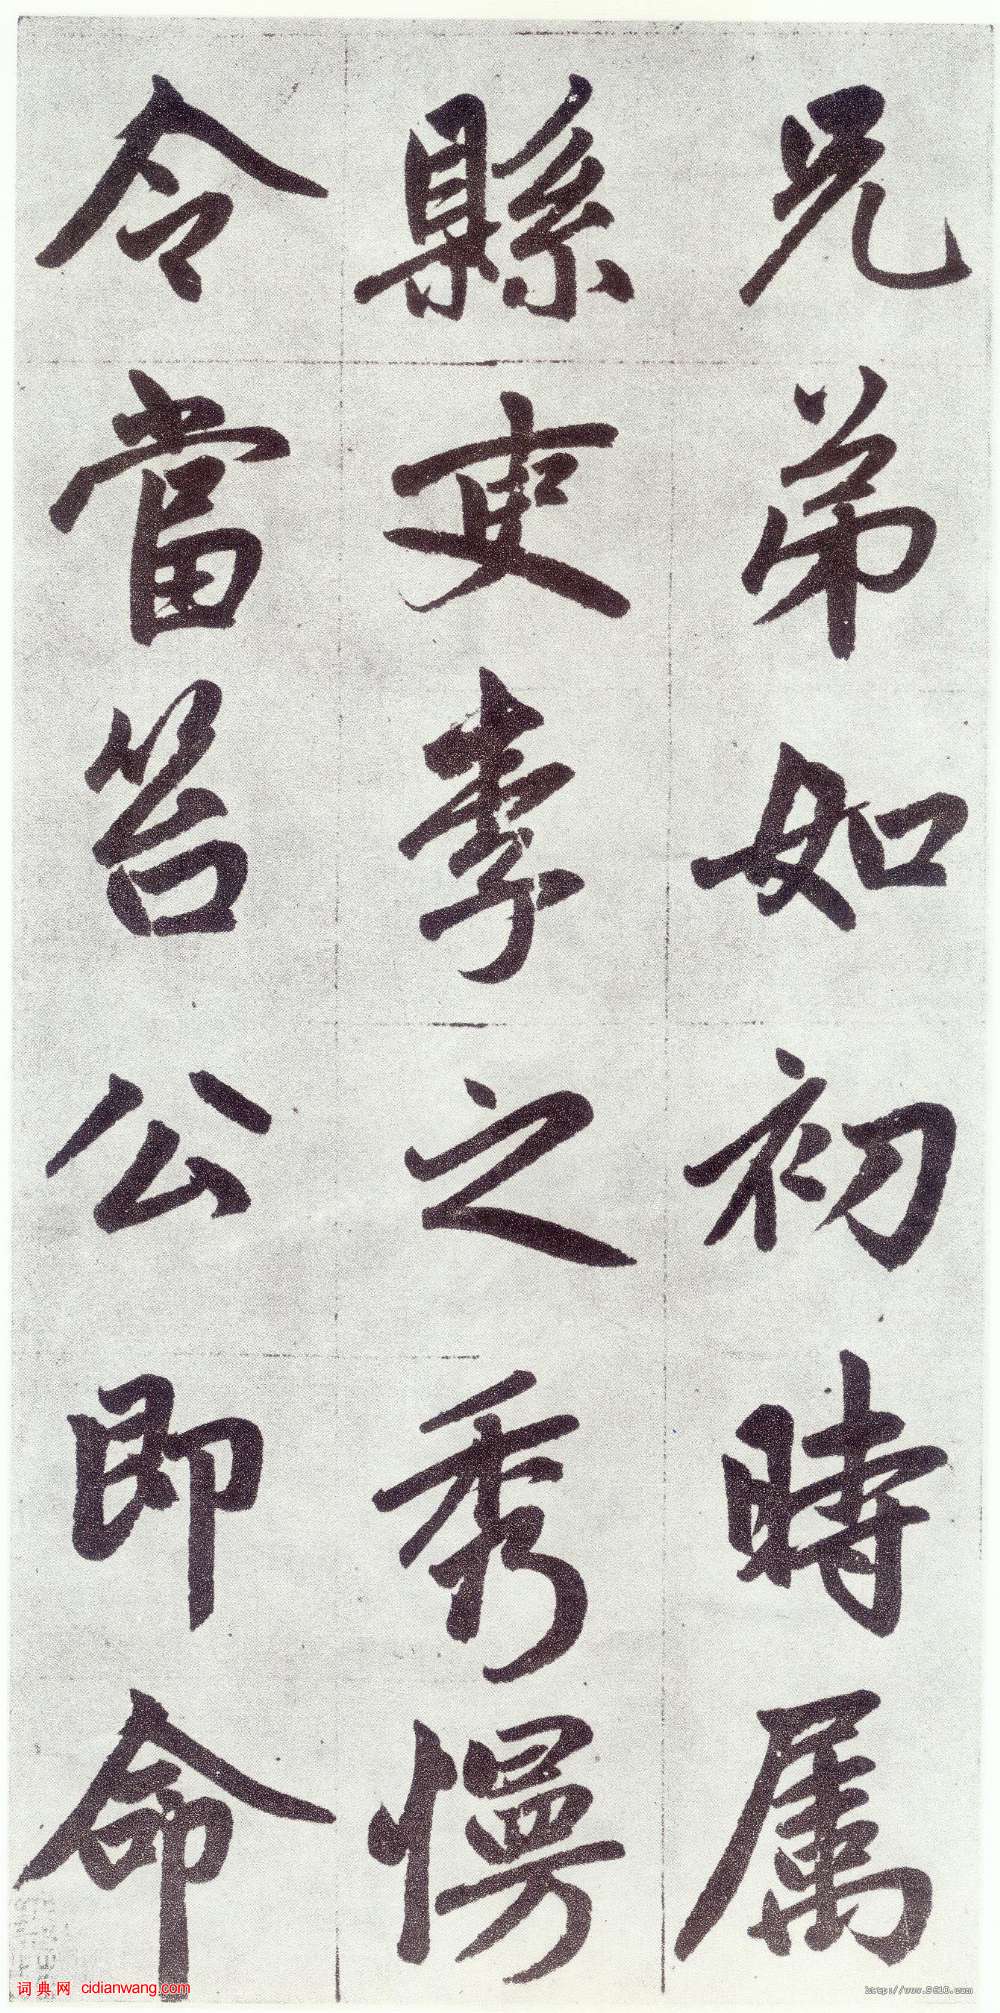 兄弟如初時属
縣吏李之秀慢
令當笞公即命
词典网 cidianwang.com
http://www.9610.com